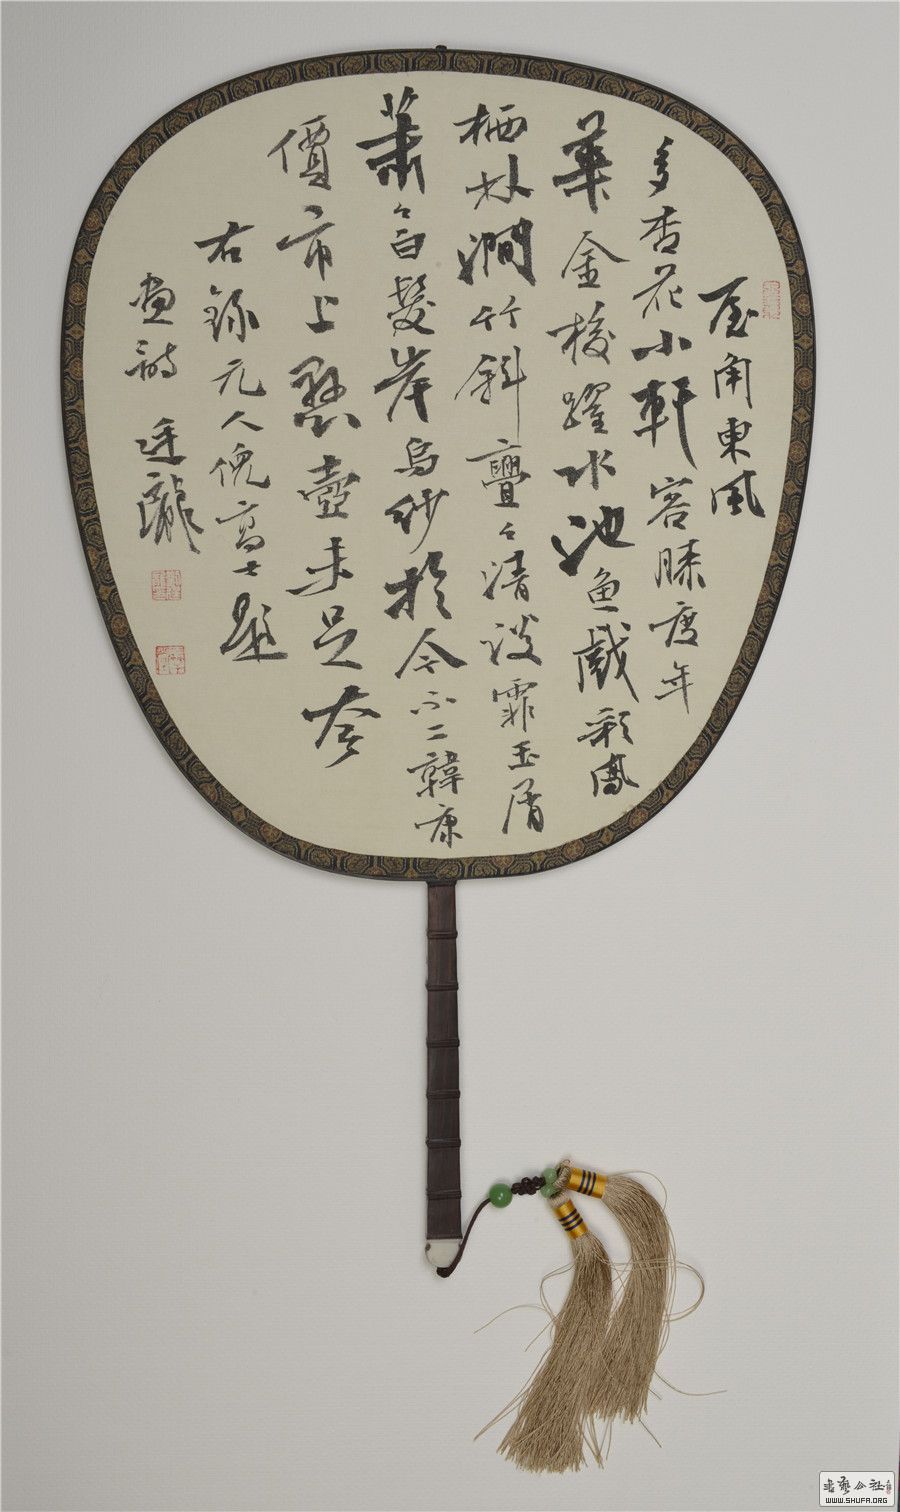 屋角東風
多杏花小軒容膝度年
華金梭躍水池魚戲彩鳳
栖林澗竹斜亹々清談霏玉屑
蕭々白髮岸烏紗於今不二韓康
價市上懸壺未足夸
右錄元人倪高士題
畫詩
書藝公社
WWW.SHUFA.ORG